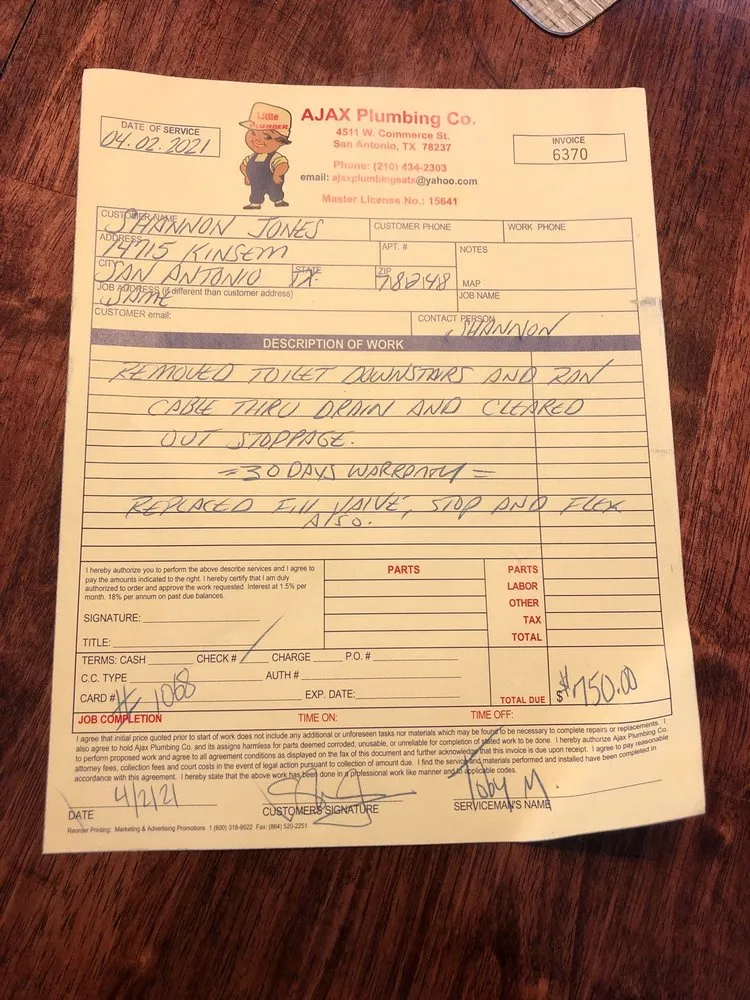 Little
PLUMBER
AJAX Plumbing Co.
4511 W. Commerce St.
San Antonio, TX 78237
Phone: (210) 434-2303
email: ajaxplumbingsatx@yahoo.com
Master License No.: 15641
DATE OF SERVICE
04.02.2021
INVOICE
6370
CUSTOMER NAME
SHANNON JONES
CUSTOMER PHONE
WORK PHONE
ADDRESS
14715 KINSEM
APT. #
NOTES
CITY STATE ZIP
SAN ANTONIO TX. 78248
MAP
JOB ADDRESS (if different than customer address)
SAME
JOB NAME
CUSTOMER email:
CONTACT PERSON
SHANNON
DESCRIPTION OF WORK
REMOVED TOILET DOWNSTAIRS AND RAN
CABLE THRU DRAIN AND CLEARED
OUT STOPPAGE.
=30 DAYS WARRANTY=
REPLACED FILL VALVE, STOP AND FLEX
ALSO.
I hereby authorize you to perform the above describe services and I agree to
pay the amounts indicated to the right. I hereby certify that I am duly
authorized to order and approve the work requested. Interest at 1.5% per
month. 18% per annum on past due balances.
SIGNATURE:
TITLE:
PARTS
PARTS
LABOR
OTHER
TAX
TOTAL
TERMS: CASH CHECK # CHARGE P.O. #
C.C. TYPE AUTH #
CARD # # 1068 EXP. DATE:
TOTAL DUE $ $750.00
JOB COMPLETION TIME ON: TIME OFF:
I agree that initial price quoted prior to start of work does not include any additional or unforeseen tasks nor materials which may be found to be necessary to complete repairs or replacements. I,
also agree to hold Ajax Plumbing Co. and its assigns harmless for parts deemed corroded, unusable, or unreliable for completion of stated work to be done. I hereby authorize Ajax Plumbing Co.
to perform proposed work and agree to all agreement conditions as displayed on the face of this document and further acknowledge that this invoice is due upon receipt. I agree to pay reasonable
attorney fees, collection fees and court costs in the event of legal action pursuant to collection of amount due. I find the service and materials performed and installed have been completed in
accordance with this agreement. I hereby state that the above work has been done in a professional work like manner and to applicable codes.
4/2/21
Toby M.
DATE
CUSTOMERS SIGNATURE
SERVICEMAN'S NAME
Reorder Printing: Marketing & Advertising Promotions 1 (800) 318-9522 Fax: (864) 520-2251